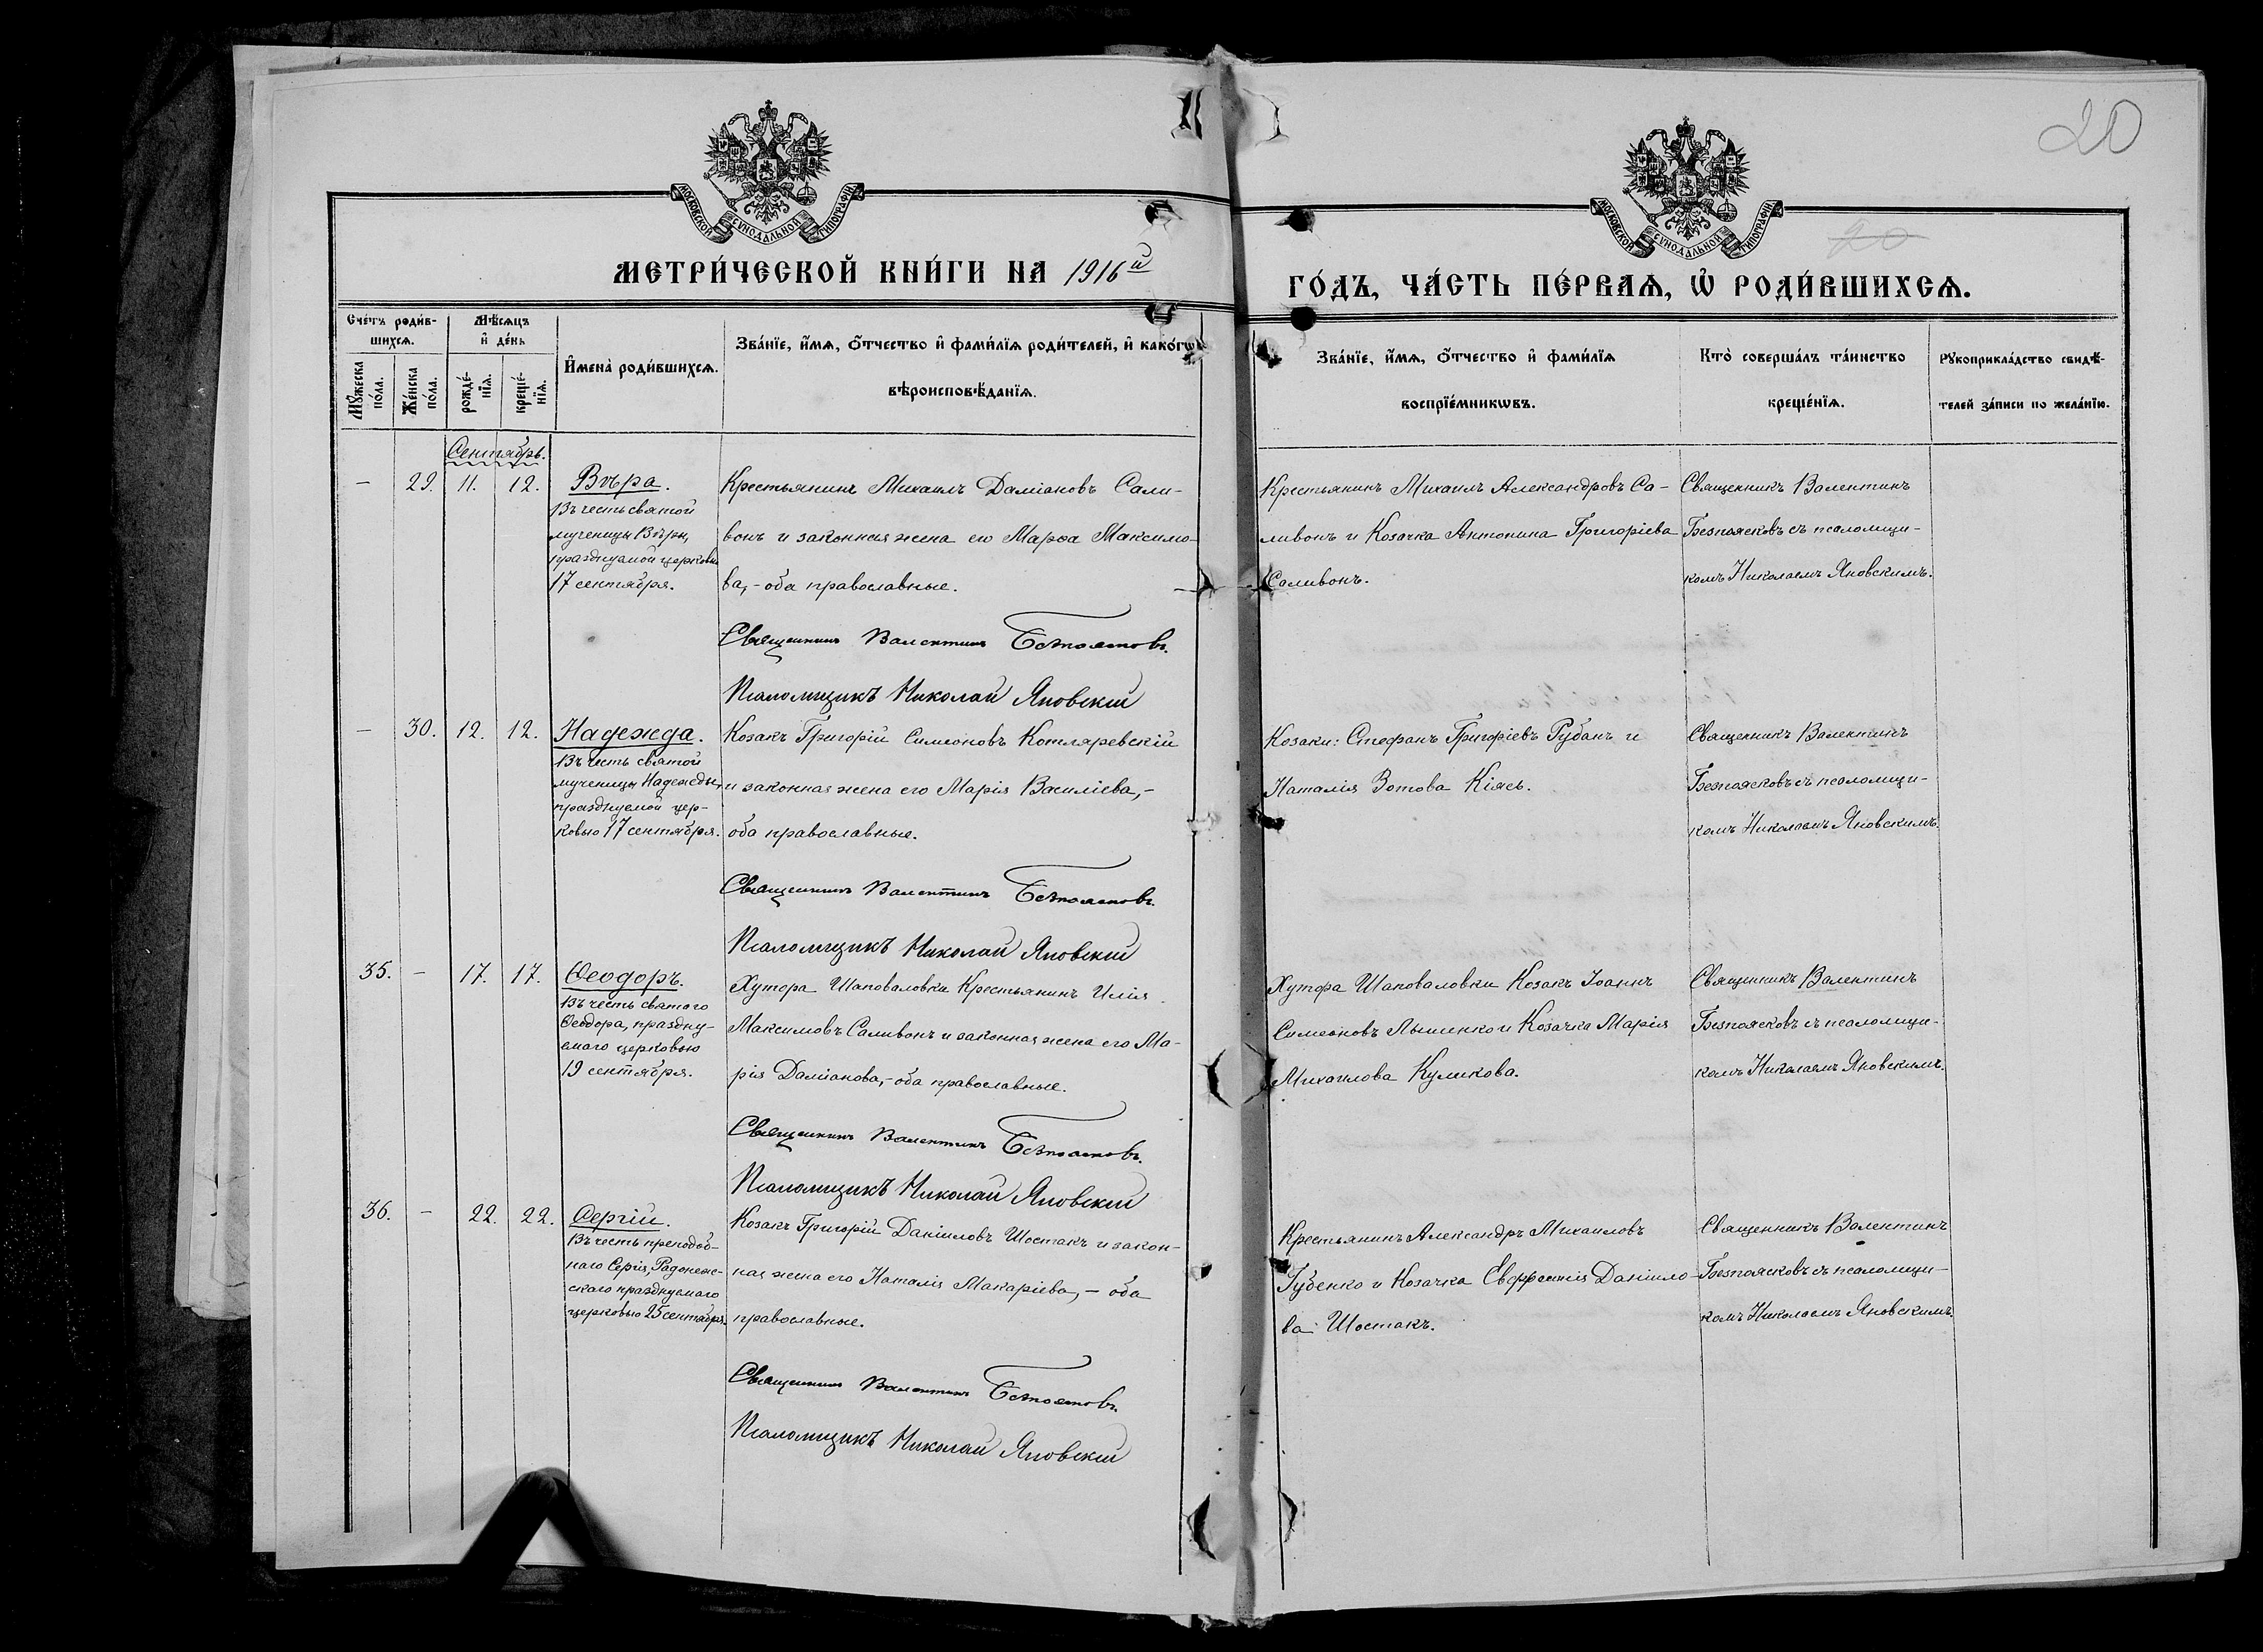 20
МОСКОВСКОЙ СѴНОДАЛЬНОЙ ТИПОГРАФІИ
МОСКОВСКОЙ СѴНОДАЛЬНОЙ ТИПОГРАФІИ
20
МЕТРИ́ЧЕСКОЙ КНИ́ГИ НА 1916й
ГО́ДЪ, ЧА́СТЬ ПЕ́РВАѦ, Ѡ҆ РОДИ́ВШИХСѦ.
Сче́тъ роди́в-
шихсѧ.
Мꙋ́жеска по́ла.
Же́нска по́ла.
Мѣ́сѧцъ
и҆ де́нь
рожде́-
нїѧ.
креще́-
нїѧ.
И҆мена̀ роди́вшихсѧ.
Зва́нїе, и҆́мѧ, ѻ҆́тчество и҆ фами́лїѧ роди́телей, и҆ како́гѡ
вѣроисповѣ́данїѧ.
Зва́нїе, и҆́мѧ, ѻ҆́тчество и҆ фами́лїѧ
воспрїе́мникѡвъ.
Кто̀ соверша́лъ та́инство
креще́нїѧ.
Рꙋкоприкла́дство свидѣ́-
телей за́писи по жела́нїю.
Сентябрь.
— 29. 11. 12.
Вѣра.
Въ честь святой
мученицы Вѣры,
празднуемой церковью
17 сентября.
Крестьянинъ Михаилъ Даміановъ Сали-
вонъ и законная жена его Марѳа Максимо-
ва,- оба православные.
Священникъ Валентинъ Безпоясковъ.
Псаломщикъ Николай Яновскій
Крестьянинъ Михаилъ Александровъ Са-
ливонъ и Козачка Антонина Григоріева
Саливонъ.
Священникъ Валентинъ
Безпоясковъ съ псаломщи-
комъ Николаемъ Яновскимъ.
— 30. 12. 12.
Надежда.
Въ честь святой
мученицы Надежды,
празднуемой цер-
ковью 17 сентября.
Козакъ Григорій Симеоновъ Котляревскій
и законная жена его Марія Василіева,-
оба православные.
Священникъ Валентинъ Безпоясковъ.
Псаломщикъ Николай Яновскій
Козаки: Стефанъ Григоріевъ Рубанъ и
Наталія Зотова Кіясь.
Священникъ Валентинъ
Безпоясковъ съ псаломщи-
комъ Николаемъ Яновскимъ.
35. — 17. 17.
Ѳеодоръ.
Въ честь святого
Ѳеодора, праздну-
емаго церковью
19 сентября.
Хутора Шаповаловки Крестьянинъ Илія
Максимовъ Саливонъ и законная жена его Ма-
рія Даміанова,- оба православные.
Священникъ Валентинъ Безпоясковъ.
Псаломщикъ Николай Яновскій
Хутора Шаповаловки Козакъ Іоаннъ
Симеоновъ Лышенко и Козачка Марія
Михаилова Куликова.
Священникъ Валентинъ
Безпоясковъ съ псаломщи-
комъ Николаемъ Яновскимъ.
36. — 22. 22.
Сергій.
Въ честь преподоб-
наго Сергія, Радонеж-
скаго празднуемаго
церковью 25 сентября.
Козакъ Григорій Даніиловъ Шостакъ и закон-
ная жена его Наталія Макаріева,- оба
православные.
Священникъ Валентинъ Безпоясковъ.
Псаломщикъ Николай Яновскій
Крестьянинъ Александръ Михаиловъ
Губенко и Козачка Евфросинія Даніило-
ва Шостакъ.
Священникъ Валентинъ
Безпоясковъ съ псаломщи-
комъ Николаемъ Яновскимъ.